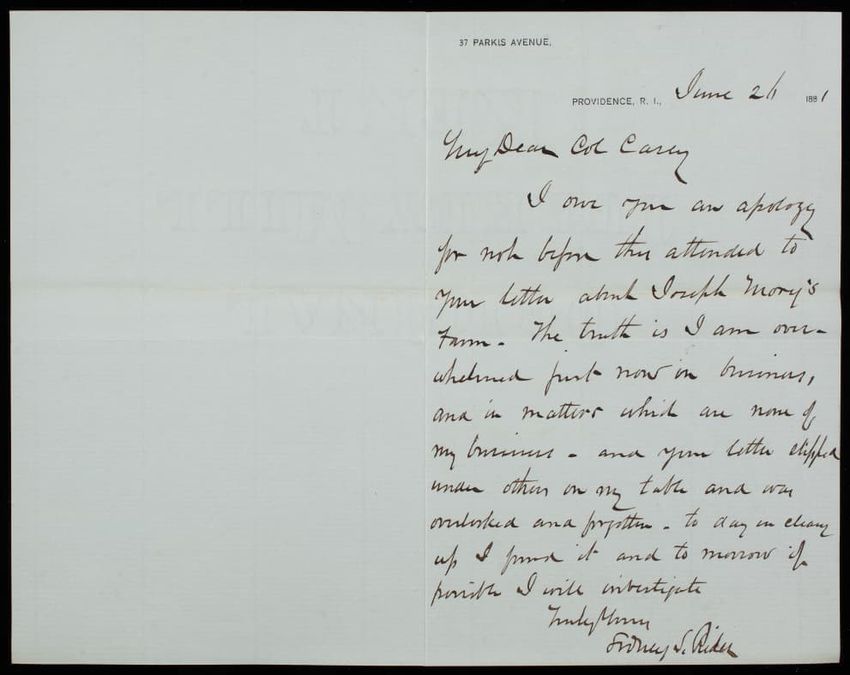 37 PARKIS AVENUE,
PROVIDENCE, R. I., June 26 1881
My Dear Col Casey
I owe you an apology
for not before this attended to
your letter about Joseph Mory's
Farm - The truth is I am over-
whelmed just now in business,
and in matters which are none of
my business - and your letter slipped
under others on my table and was
overlooked and forgotten - to day in cleaning
up I found it and to morrow if
possible I will investigate
Truly Yours
Sidney S. Rider